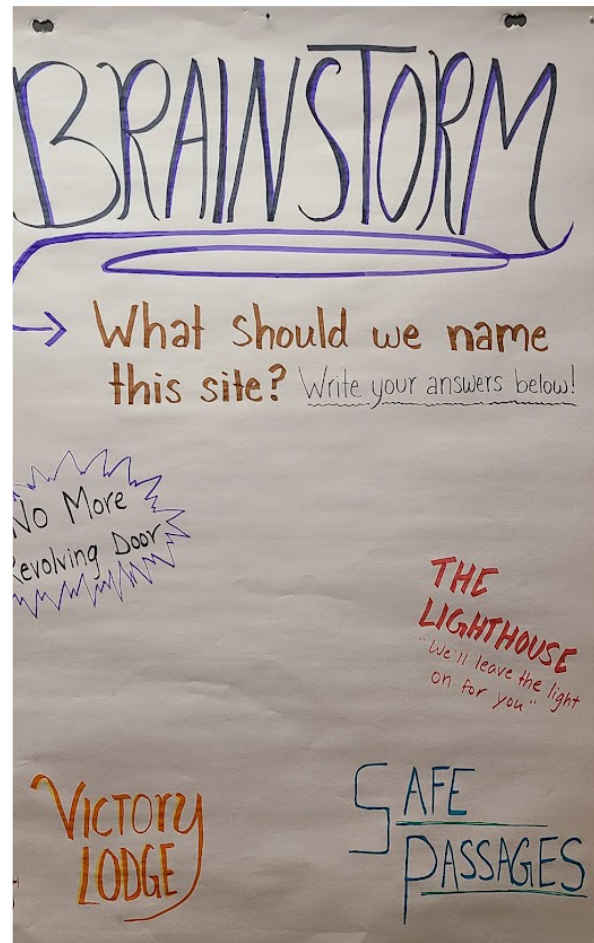 BRAINSTORM
What should we name
this site? Write your answers below!
No More
Revolving Door
THE
LIGHTHOUSE
"We'll leave the light
on for you"
VICTORY
LODGE
SAFE
PASSAGES